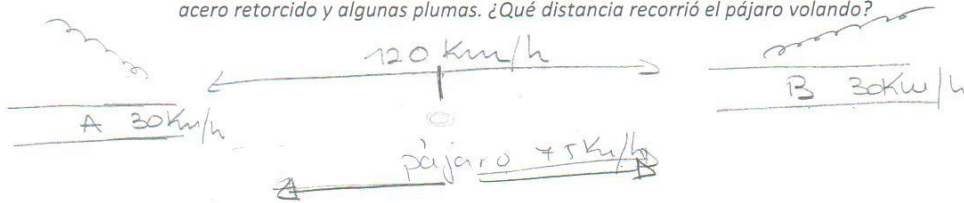 acero retorcido y algunas plumas. ¿Qué distancia recorrió el pájaro volando?
120 Km/h
A 30Km/h
B 30Km/h
pájaro 75Km/h